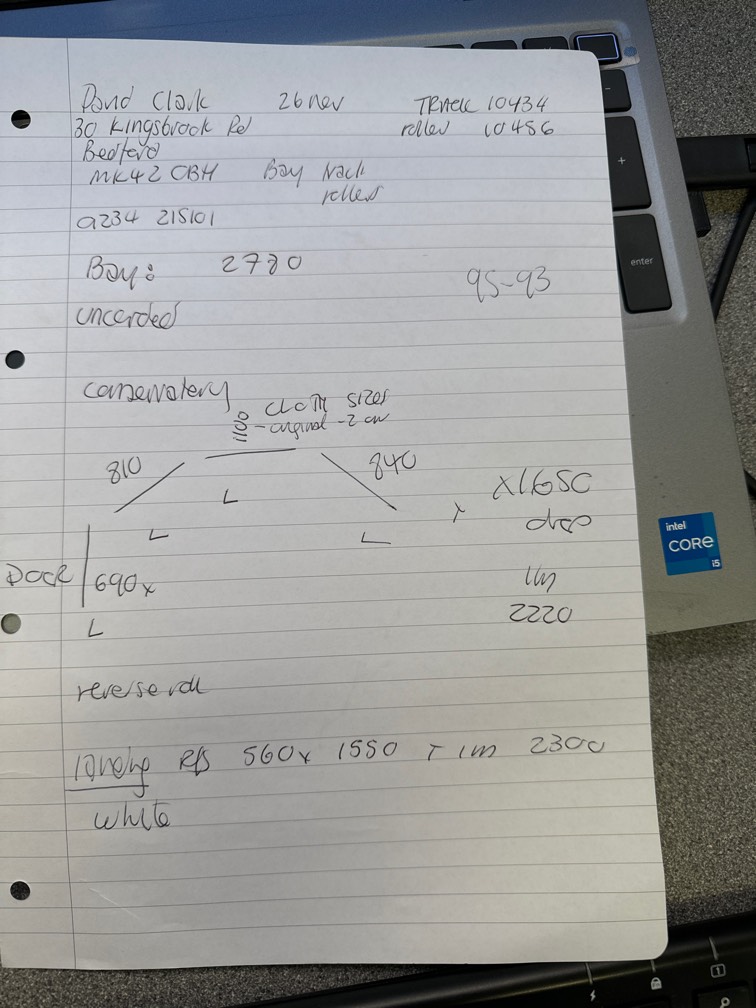 David Clark 26 nov TRACK 10434
30 Kingsbrook Rd roller 10456
Bedford
MK42 0BH Bay track
rollers
0234 215101
Bay: 2780
95-93
uncorded
conservatory
cloth sizes
1100 - original -2 cm
810 840
L x1650
L L drop
Door 690x 1m
L 2220
reverse roll
landing R/S 560x 1550 1m 2300
white
enter
intel
CORE
i5